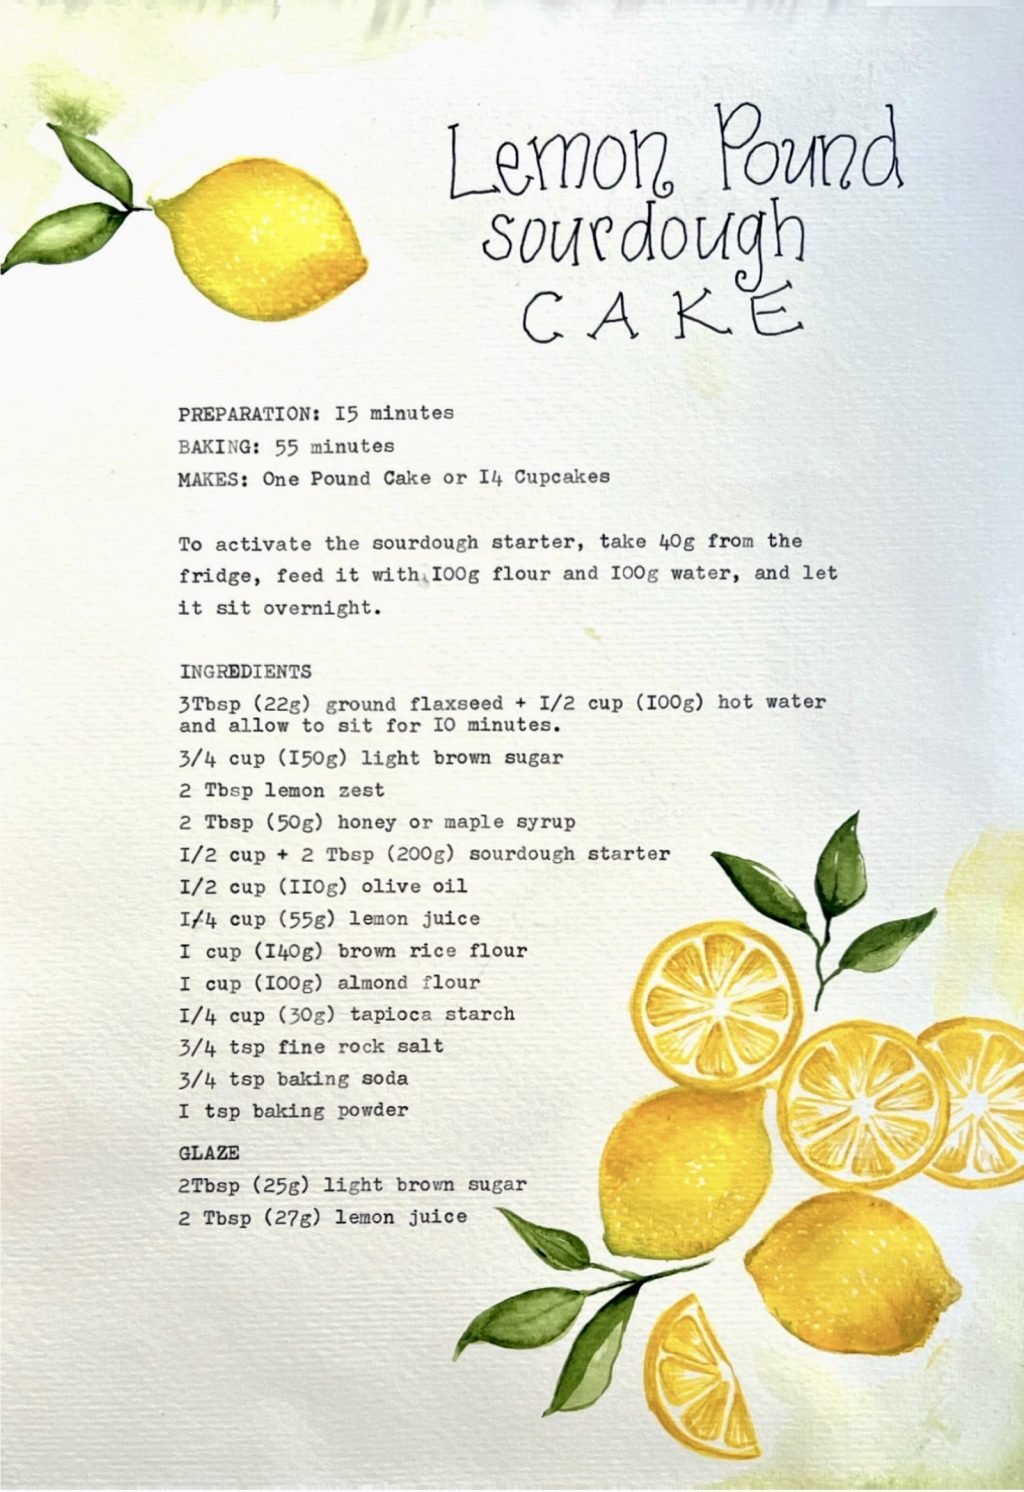 Lemon Pound
sourdough
CAKE
PREPARATION: I5 minutes
BAKING: 55 minutes
MAKES: One Pound Cake or I4 Cupcakes
To activate the sourdough starter, take 40g from the
fridge, feed it with I00g flour and I00g water, and let
it sit overnight.
INGREDIENTS
3Tbsp (22g) ground flaxseed + I/2 cup (I00g) hot water
and allow to sit for I0 minutes.
3/4 cup (I50g) light brown sugar
2 Tbsp lemon zest
2 Tbsp (50g) honey or maple syrup
I/2 cup + 2 Tbsp (200g) sourdough starter
I/2 cup (II0g) olive oil
I/4 cup (55g) lemon juice
I cup (I40g) brown rice flour
I cup (I00g) almond flour
I/4 cup (30g) tapioca starch
3/4 tsp fine rock salt
3/4 tsp baking soda
I tsp baking powder
GLAZE
2Tbsp (25g) light brown sugar
2 Tbsp (27g) lemon juice